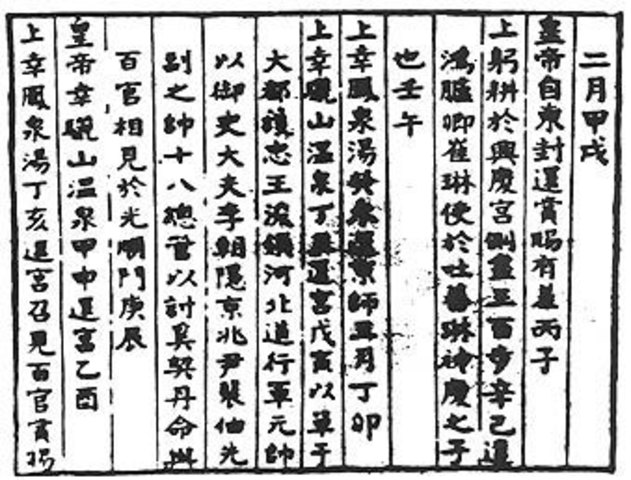 二月甲戌
皇帝自東封還賞賜有差丙子
上躬耕於興慶宮側盡三百步辛己遣
鴻臚卿崔琳使於吐蕃琳神慶之子
也壬午
上幸鳳泉湯還京師月丁卯
上幸驪山溫泉丁還宮戊寅以單于
大都護忠王浚領河北道行軍元帥
以御史大夫李朝隱京兆尹裴伷先
副之帥十八總管以討奚契丹命與
百官相見於光順門庚辰
皇帝幸驪山溫泉甲申還宮乙酉
上幸鳳泉湯丁亥還宮召見百官賞賜